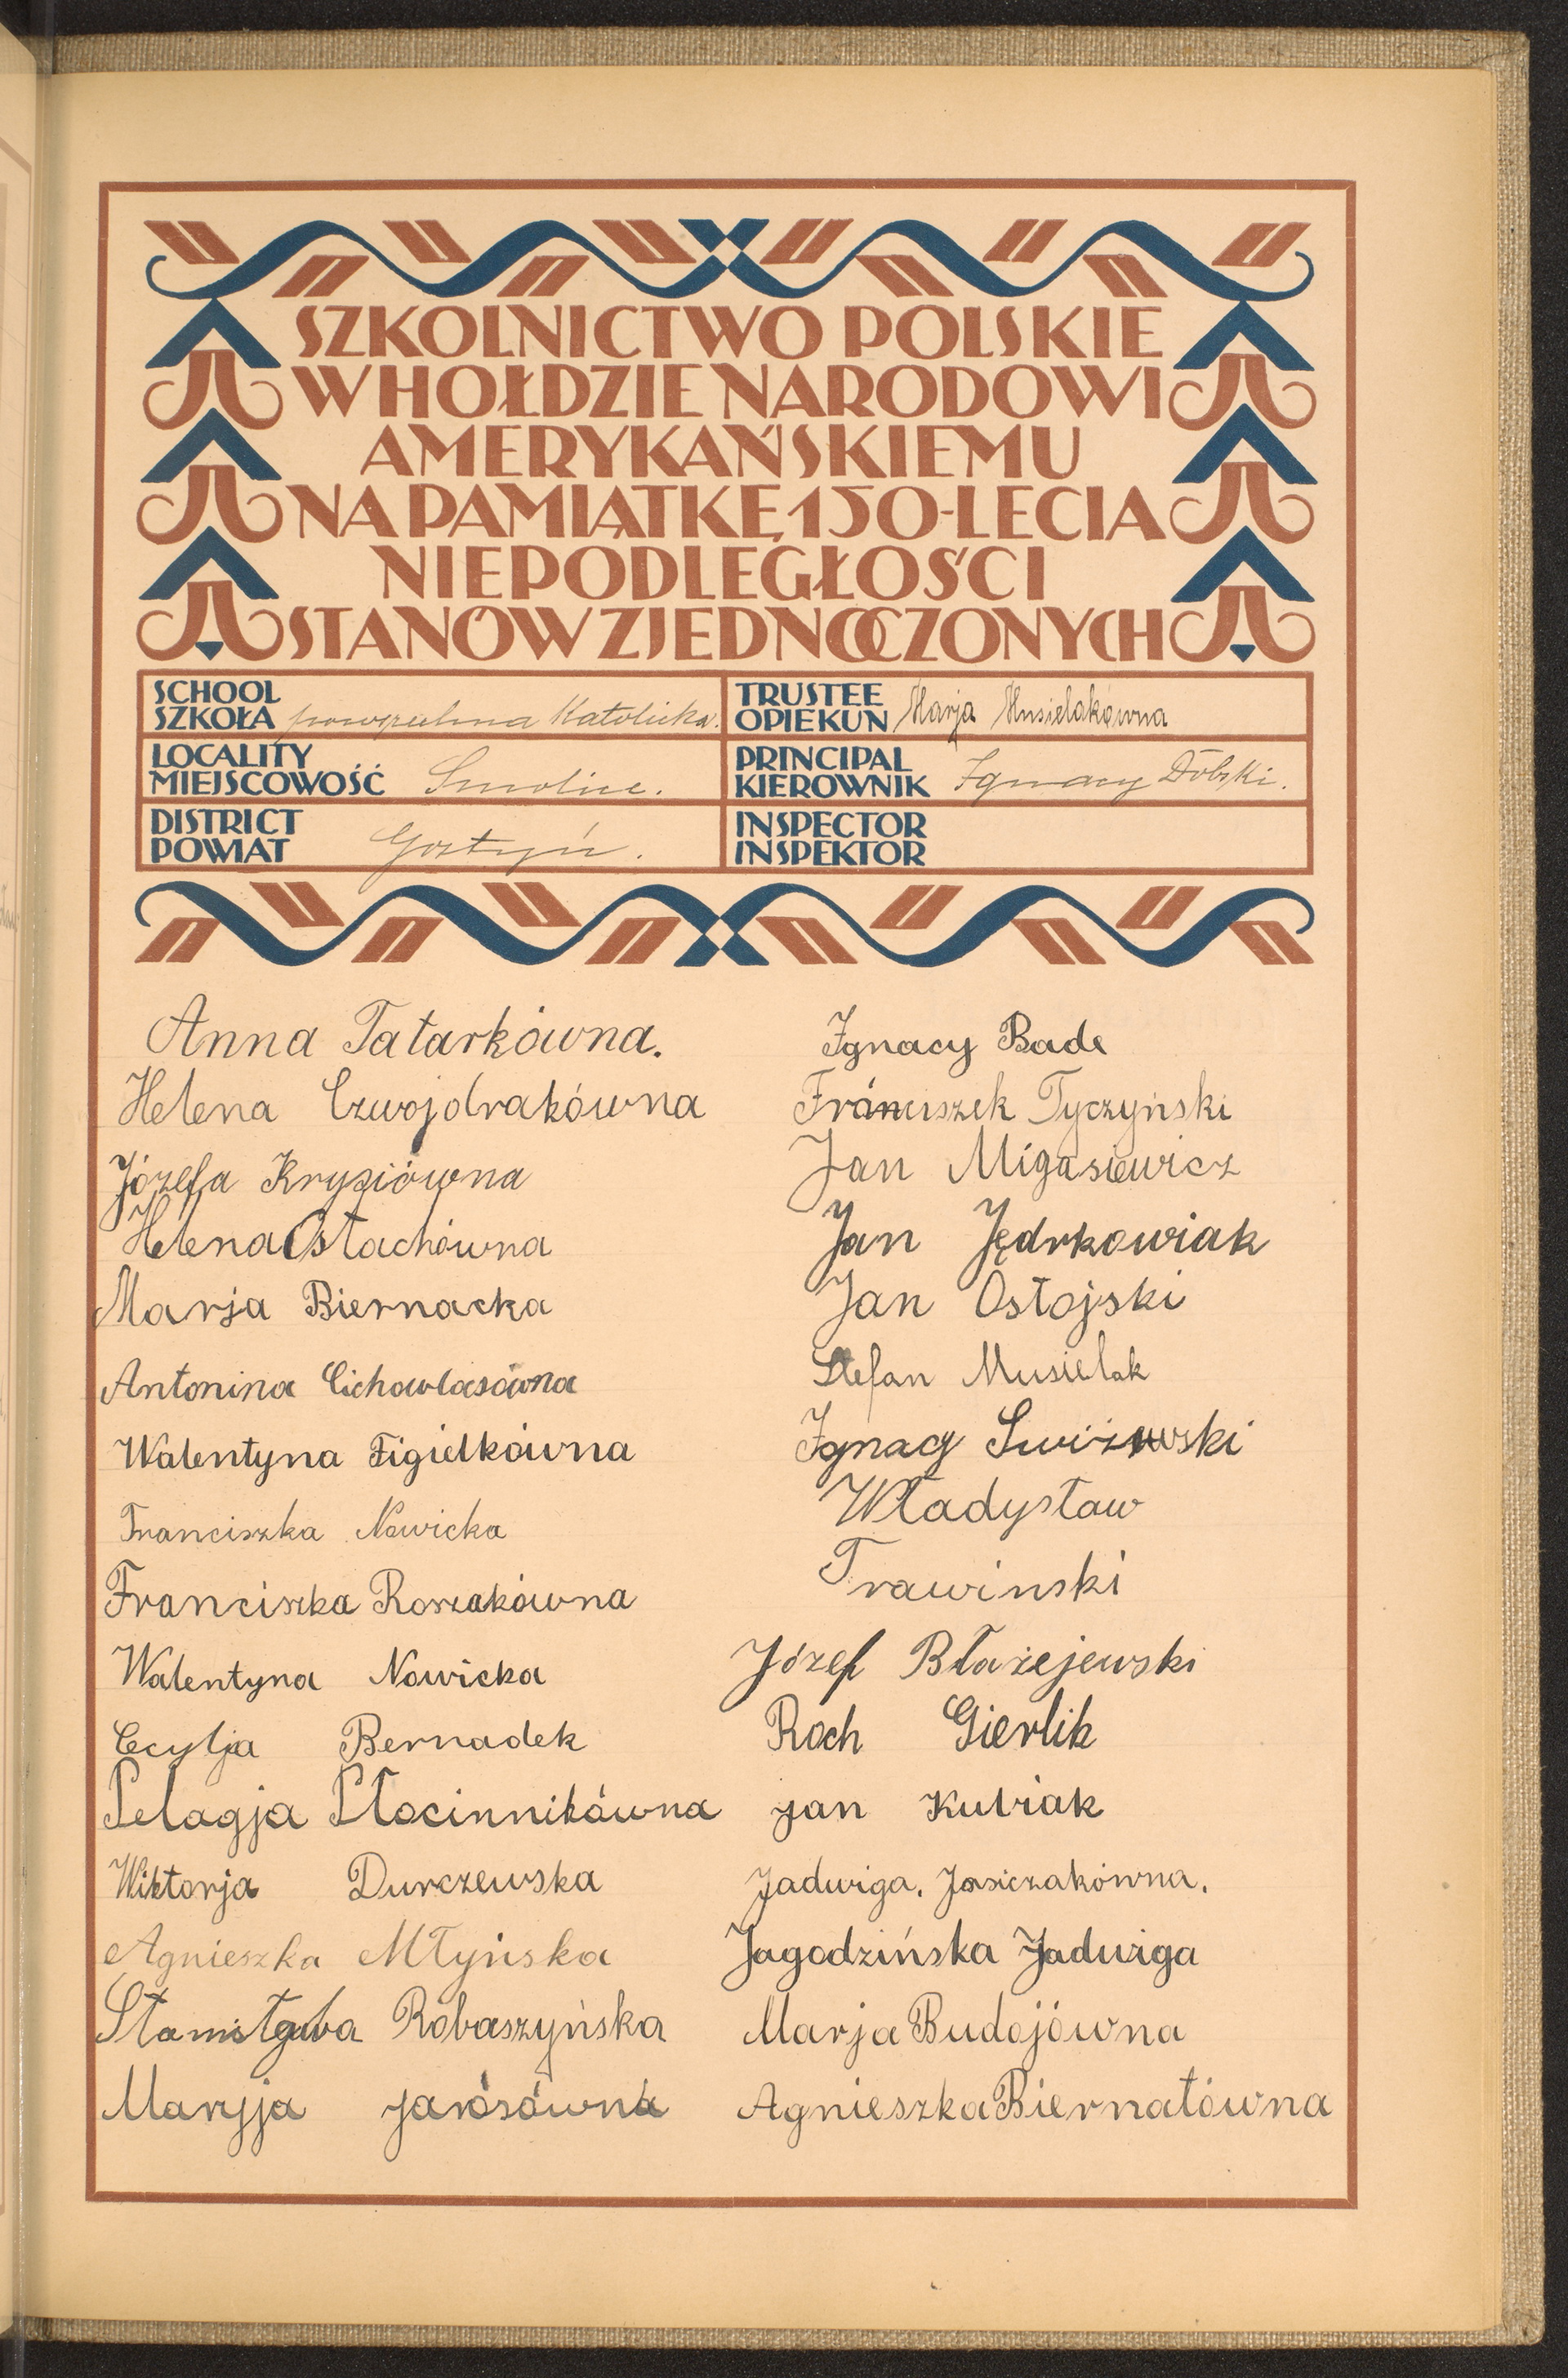 SZKOLNICTWO POLSKIE
W HOŁDZIE NARODOWI
AMERYKAŃSKIEMU
NA PAMIĄTKĘ 150-LECIA
NIEPODLEGŁOŚCI
STANÓW ZJEDNOCZONYCH
SCHOOL
SZKOŁA powszechna Katolicka.
TRUSTEE
OPIEKUN Marja Musielakówna
LOCALITY
MIEJSCOWOŚĆ Smolice.
PRINCIPAL
KIEROWNIK Ignacy Dolski.
DISTRICT
POWIAT Gostyń.
INSPECTOR
INSPEKTOR
Anna Tatarkówna.
Helena Czwojdrakówna
Józefa Krysiówna
Helena Ostachówna
Marja Biernacka
Antonina Cichowlasówna
Walentyna Figielkówna
Franciszka Nowicka
Franciszka Roszakówna
Walentyna Nowicka
Cecylja Bernadek
Pelagja Płócinnikówna
Wiktorja Durczewska
Agnieszka Młyńska
Stanisława Robaszyńska
Maryja Jarosówna
Ignacy Bade
Franciszek Tyczyński
Jan Migasiewicz
Jan Jędrkowiak
Jan Ostojski
Stefan Musielak
Ignacy
Władysław
Trawinski
Józef Błażejewski
Roch Gierlik
Jan Kubiak
Jadwiga. Jasiczakówna.
Jagodzińska Jadwiga
Marja Budojówna
Agnieszka Biernatówna